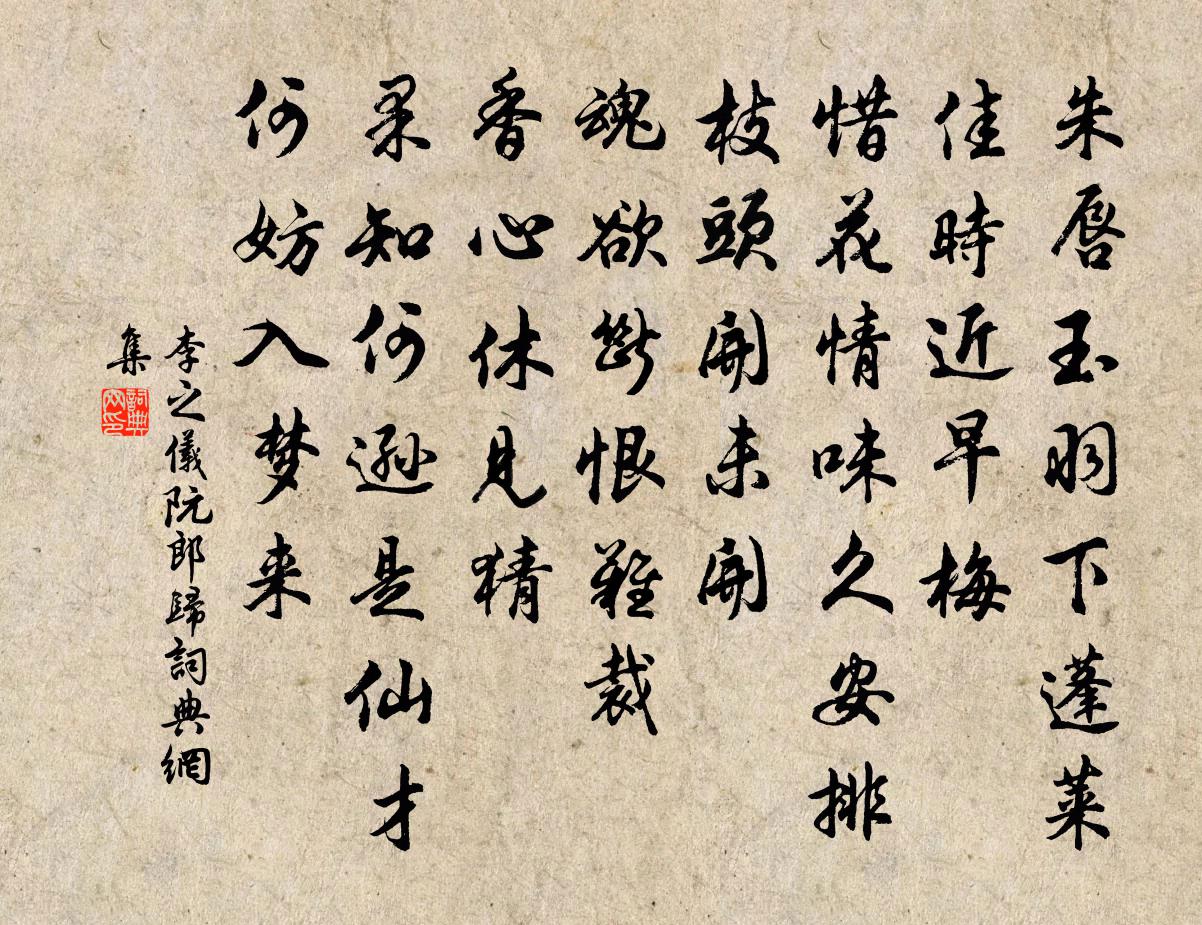 朱唇玉羽下蓬莱
佳時近早梅
惜花情味久安排
枝頭開未開
魂欲斷恨難裁
香心休見猜
果知何遜是仙才
何妨入梦来
李之儀阮郎歸詞典網
集
詞典網印